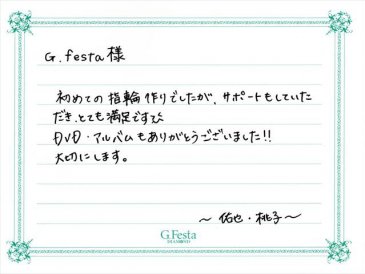 G.festa様
初めての指輪作りでしたが、サポートもしていた
だき、とても満足です
DVD・アルバムもありがとうございました!!
大切にします。
〜佑也・桃子〜
G.Festa
DIAMOND